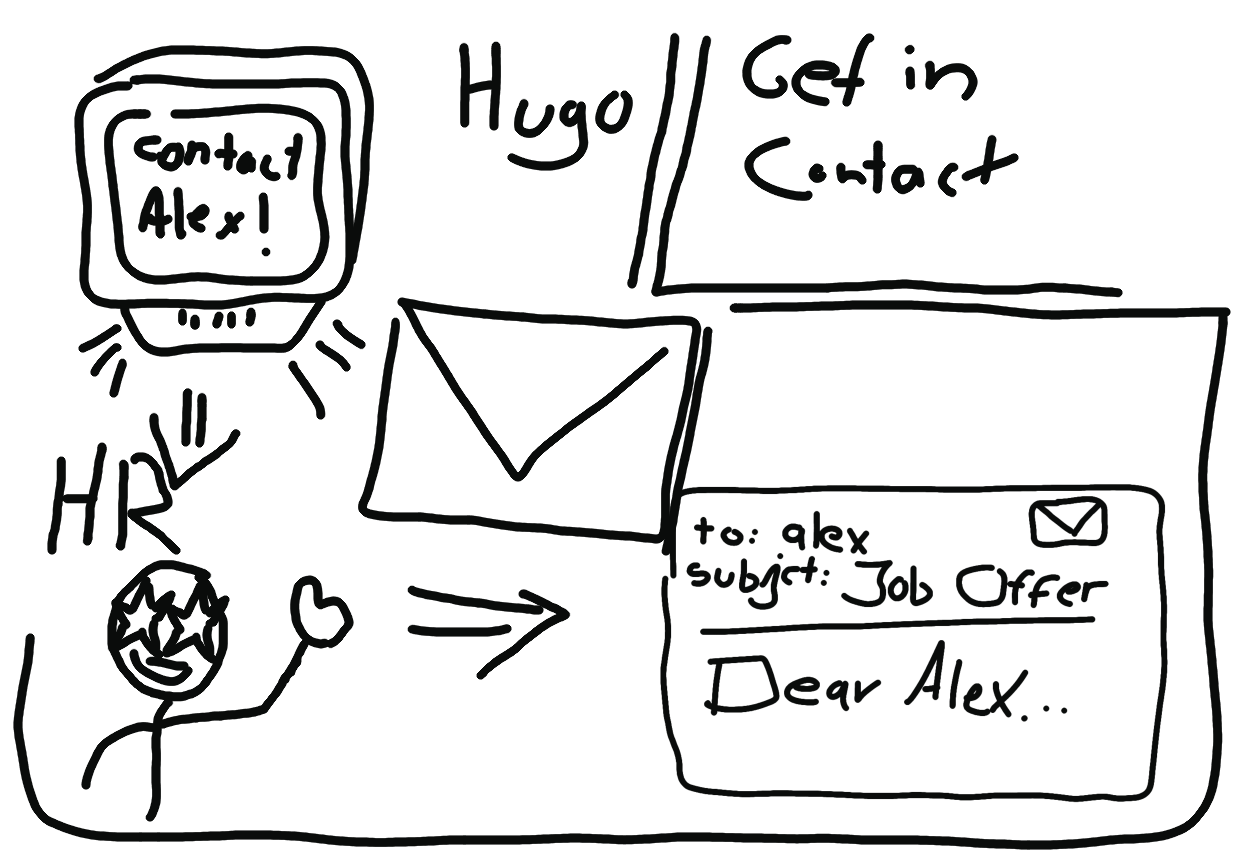 Hugo
Get in
Contact
contact
Alex!
HR
to: alex
subject: Job Offer
Dear Alex...